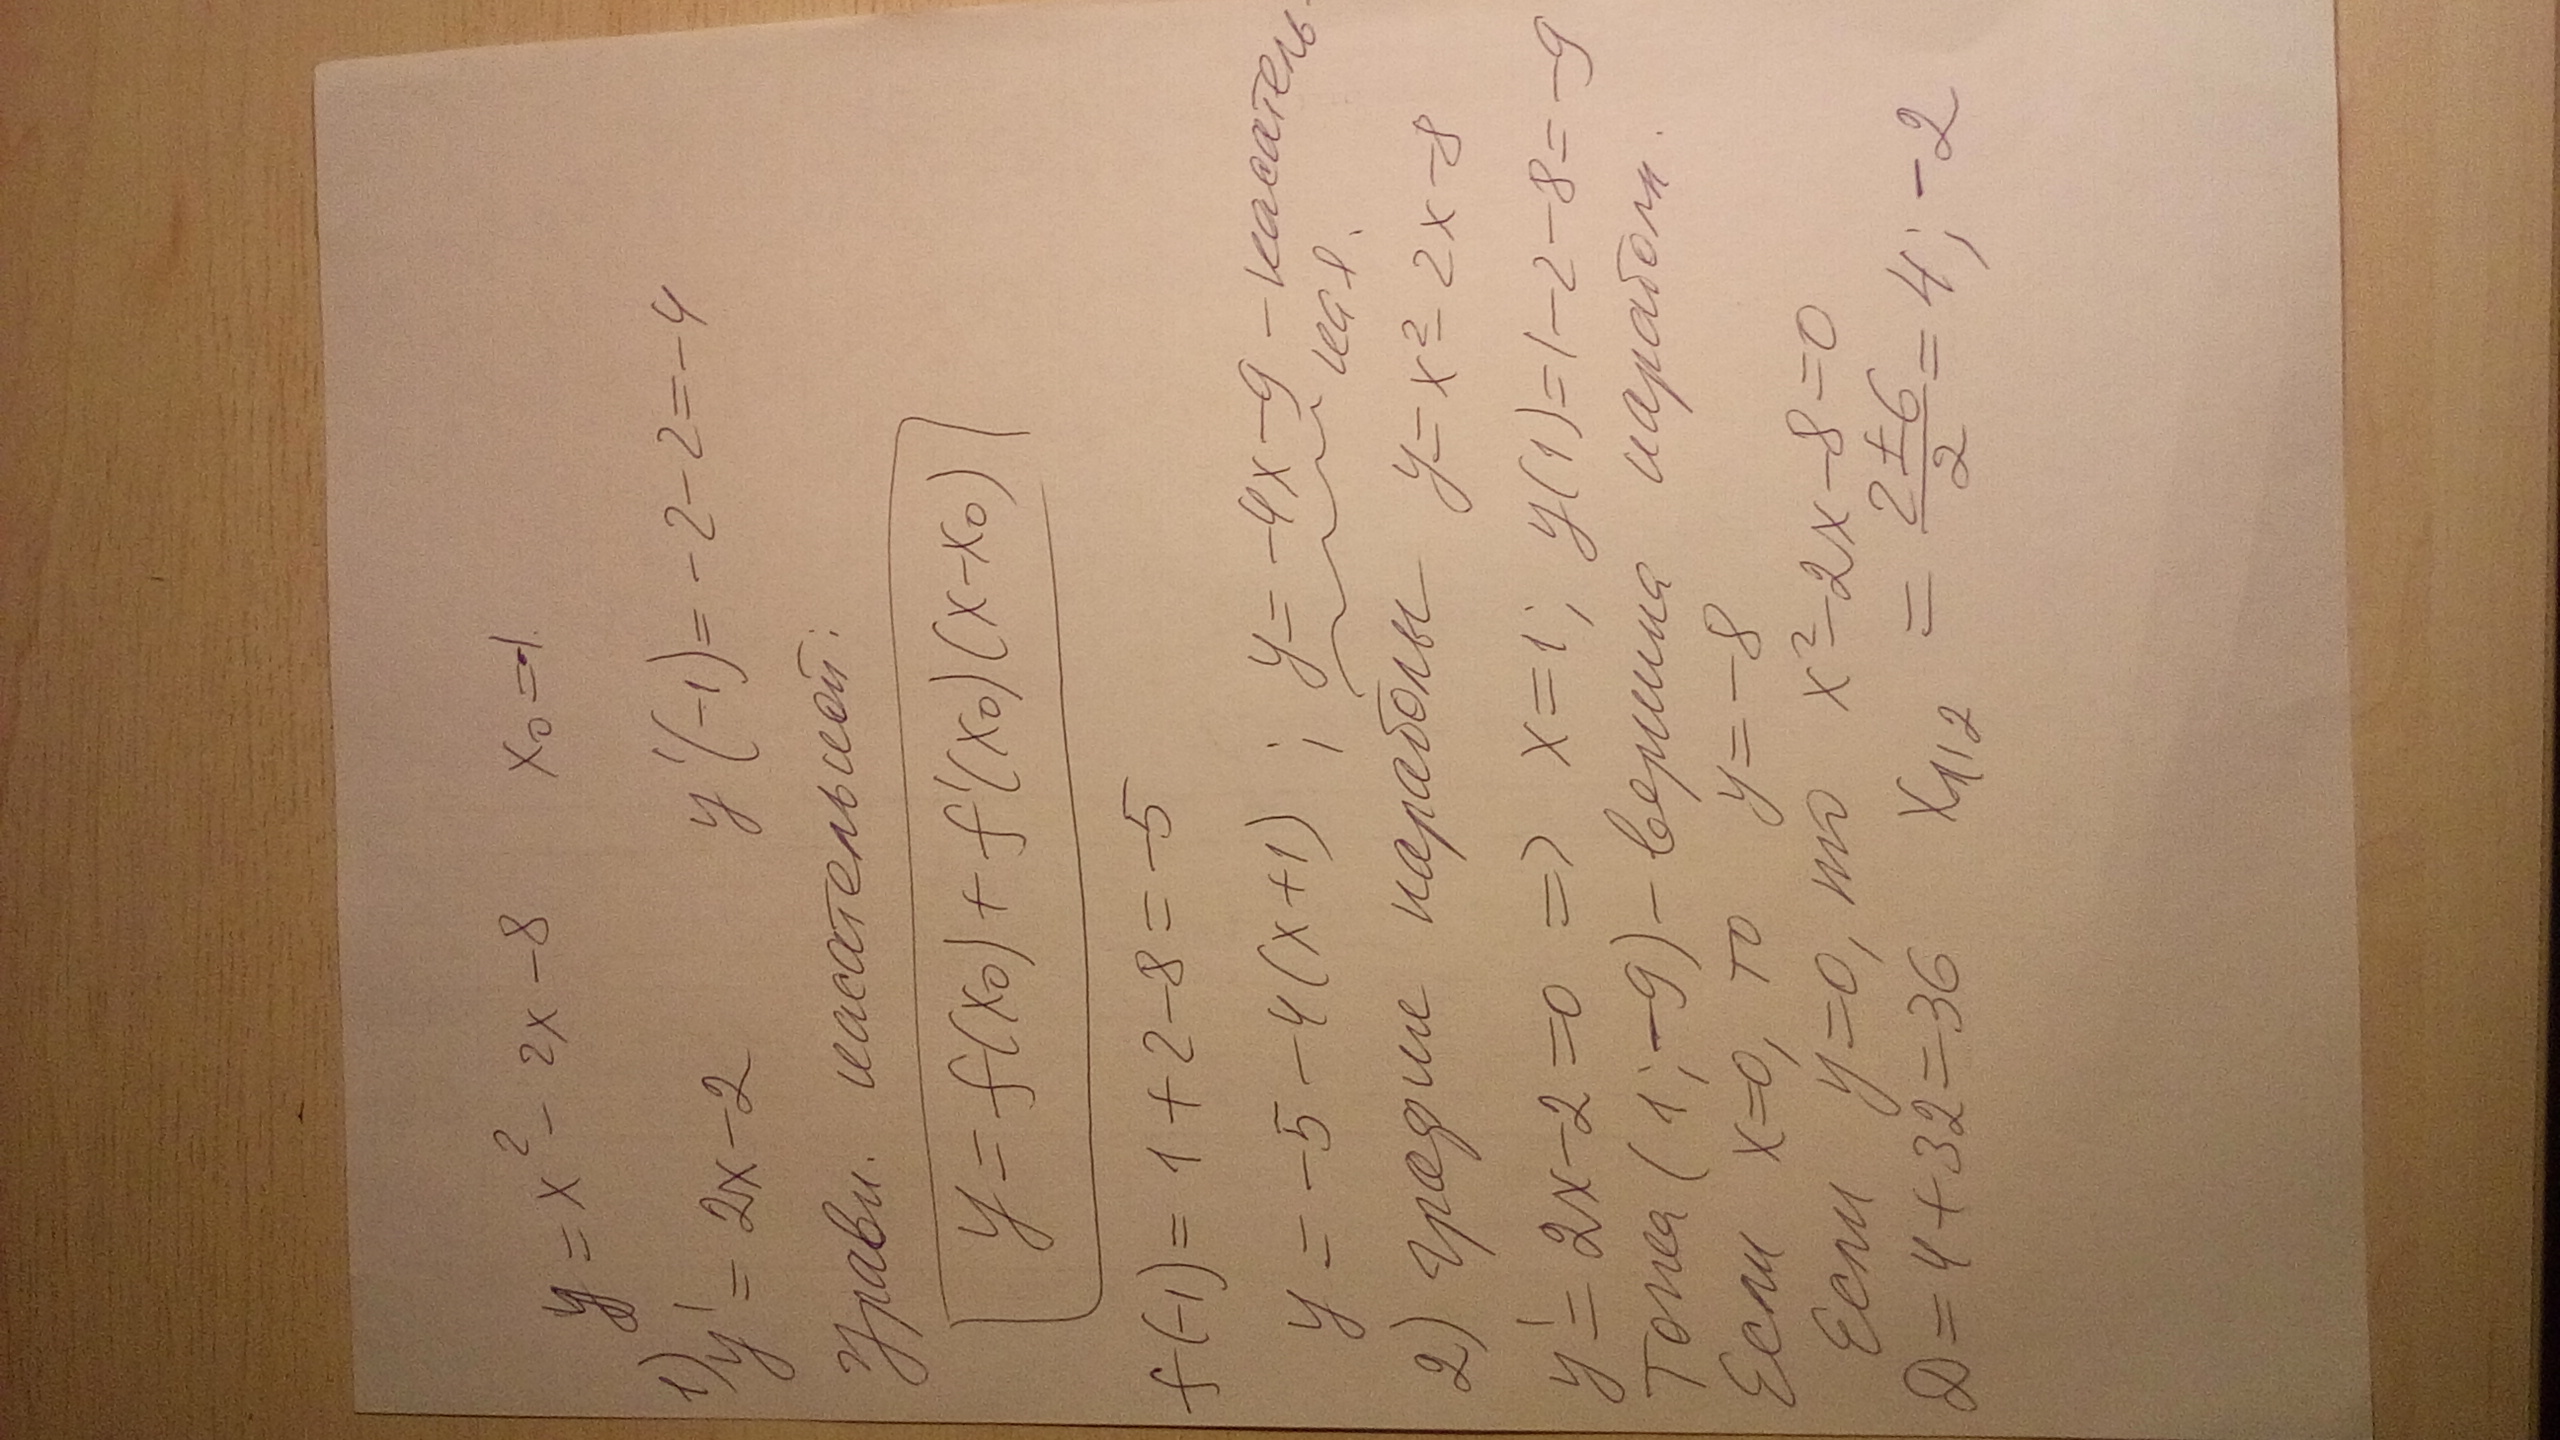 y = x² - 2x - 8 x₀ = -1.
1) y' = 2x - 2 y'(-1) = -2 - 2 = -4
Уравн. касательной:
y = f(x₀) + f'(x₀)(x - x₀)
f(-1) = 1 + 2 - 8 = -5
y = -5 - 4(x + 1) ; y = -4x - 9 - касатель-
ная.
2) График параболы y = x² - 2x - 8
y' = 2x - 2 = 0 => x = 1; y(1) = 1 - 2 - 8 = -9
Точка (1; -9) - вершина параболы.
Если x = 0, то y = -8
Если y = 0, то x² - 2x - 8 = 0
D = 4 + 32 = 36 x₁,₂ = (2 ± 6)/2 = 4; -2